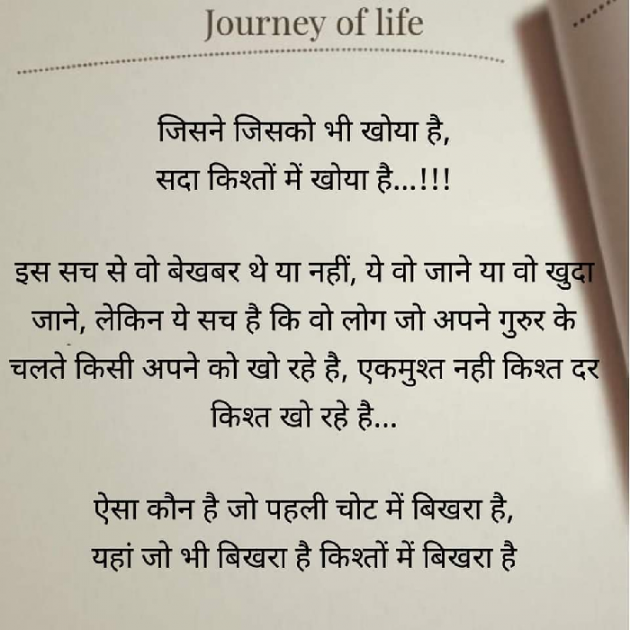 Journey of life
जिसने जिसको भी खोया है,
सदा किश्तों में खोया है...!!!
इस सच से वो बेखबर थे या नहीं, ये वो जाने या वो खुदा
जाने, लेकिन ये सच है कि वो लोग जो अपने गुरुर के
चलते किसी अपने को खो रहे है, एकमुश्त नही किश्त दर
किश्त खो रहे है...
ऐसा कौन है जो पहली चोट में बिखरा है,
यहां जो भी बिखरा है किश्तों में बिखरा है